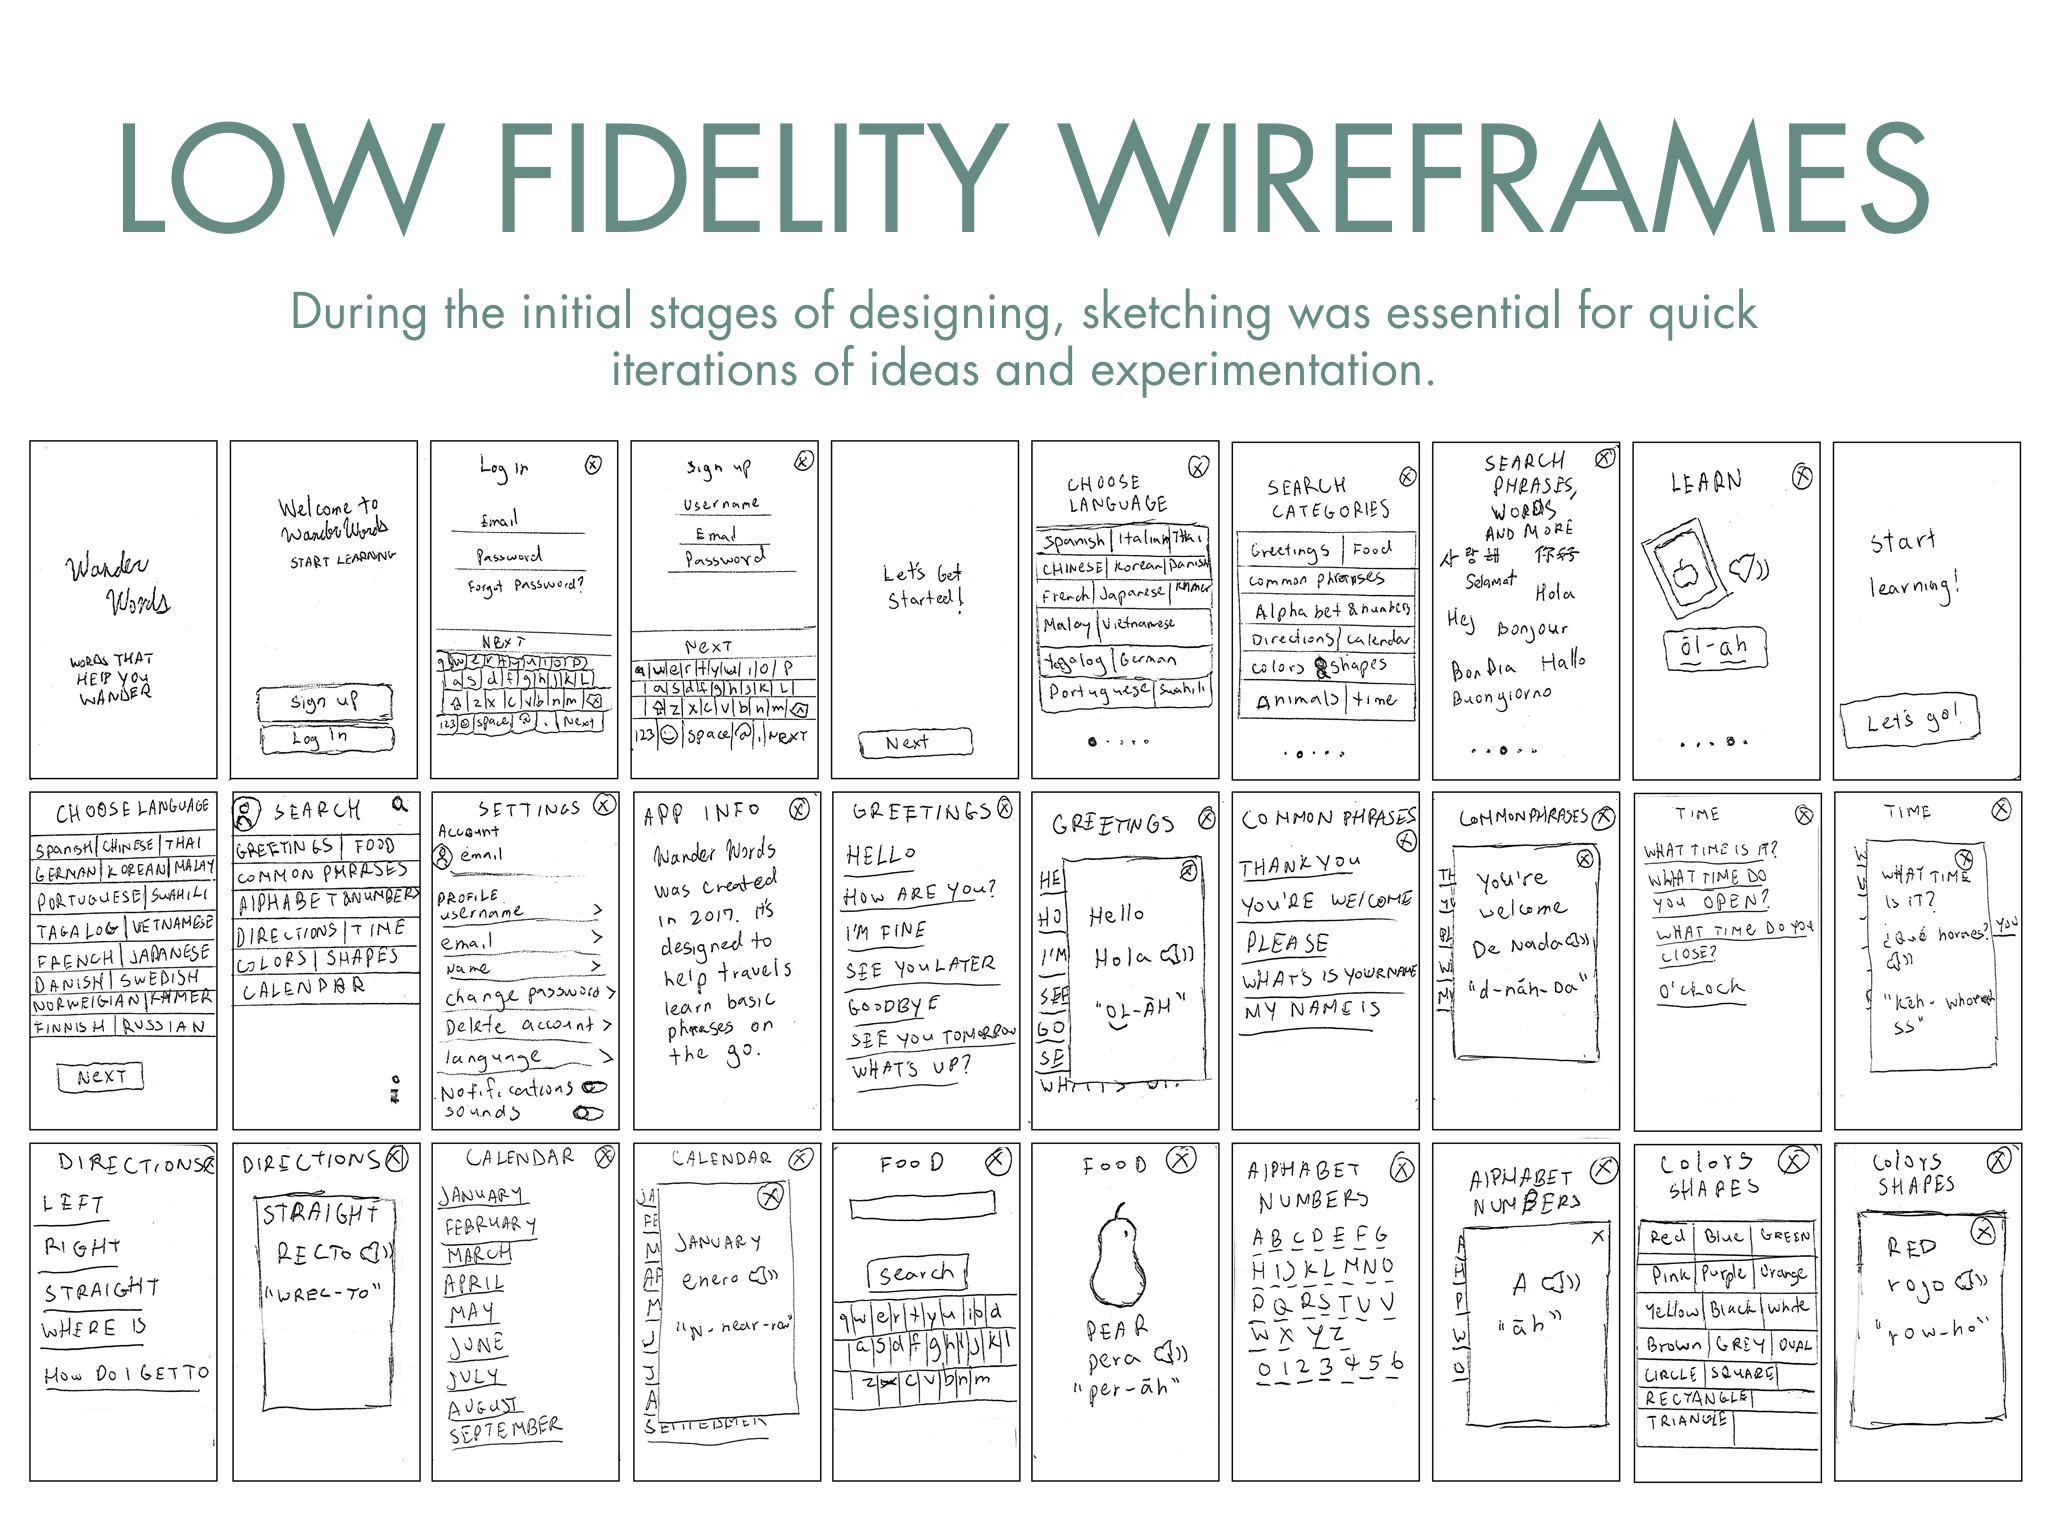 LOW FIDELITY WIREFRAMES
During the initial stages of designing, sketching was essential for quick
iterations of ideas and experimentation.
Wander
Words
WORDS THAT
HELP YOU
WANDER
Welcome to
WanderWords
START LEARNING
Sign up
Log In
Log In
Email
Password
Forgot Password?
NEXT
q w e r t y u i o p
a s d f g h j k L
z x c v b n m
123 space @ . Next
Sign up
Username
Email
Password
NEXT
a s d f g h j k L
z x c v b n m
123 space @ . NEXT
Let's Get
Started!
Next
CHOOSE
LANGUAGE
Spanish Italian Thai
CHINESE Korean Danish
French Japanese Khmer
Malay Vietnamese
togalog German
Portuguese Swahili
SEARCH
CATEGORIES
Greetings Food
common phrases
Alphabet & numbers
Directions calendar
colors & shapes
Animals time
SEARCH
PHRASES,
WORDS
AND MORE
사랑해
Selamat
Hola
Hej
Bonjour
Bon Dia Hallo
Buongiorno
LEARN
ōl-ah
Start
learning!
Let's go!
CHOOSE LANGUAGE
Spanish CHINESE THAI
GERMAN KOREAN MALAY
PORTUGUESE SWAHILI
TAGALOG VIETNAMESE
FRENCH JAPANESE
DANISH SWEDISH
NORWEIGIAN KHMER
FINNISH RUSSIAN
NEXT
SEARCH
GREETINGS FOOD
COMMON PHRASES
AlPHABET &NUMBERS
DIRECTIONS TIME
COLORS SHAPES
CALENDAR
SETTINGS
Account
email
PROFILE
username >
email >
Name >
change password >
Delete account >
language >
Notifications
sounds
APP INFO
Wander Words
was created
in 2017. it's
designed to
help travels
learn basic
phrases on
the go.
GREETINGS
HELLO
HOW ARE YOU?
I'M FINE
SEE YOU LATER
GOODBYE
SEE YOU TOMORROW
WHAT'S UP?
GREETINGS
HE
HO
I'M
SEE
GO
SE
Hello
Hola
"OL-ĀH"
COMMON PHRASES
THANK YOU
YOU'RE WELCOME
PLEASE
WHAT'S IS YOUR NAME
MY NAME IS
COMMON PHRASES
You're
welcome
De Nada
"d-nāh-Da"
TIME
WHAT TIME IS IT?
WHAT TIME DO
YOU OPEN?
WHAT TIME DO YOU
CLOSE?
O'CLOCK
TIME
WHAT TIME
IS IT?
¿Qué horaes? YOU
DIRECTIONS
LEFT
RIGHT
STRAIGHT
WHERE IS
HOW DO I GET TO
DIRECTIONS
STRAIGHT
RECTO
"WREC-TO"
CALENDAR
JANUARY
FEBRUARY
MARCH
APRIL
MAY
JUNE
JULY
AUGUST
SEPTEMBER
CALENDAR
JA
FE
M
AP
M
J
J
A
JANUARY
enero
"N-near-row"
FOOD
search
a s d f g h j k l
z x c v b n m
FOOD
PEAR
pera
"per-āh"
AlPHABET
NUMBERS
A B C D E F G
H I J K L M N O
P Q R S T U V
W X Y Z
0 1 2 3 4 5 6
AlPHABET
NUMBERS
A
"āh"
Colors
SHAPES
Red Blue GREEN
Pink Purple Orange
Yellow Black White
Brown GREY OVAL
CIRCLE SQUARE
RECTANGLE
TRIANGLE
Colors
SHAPES
RED
rojo
"row-ho"